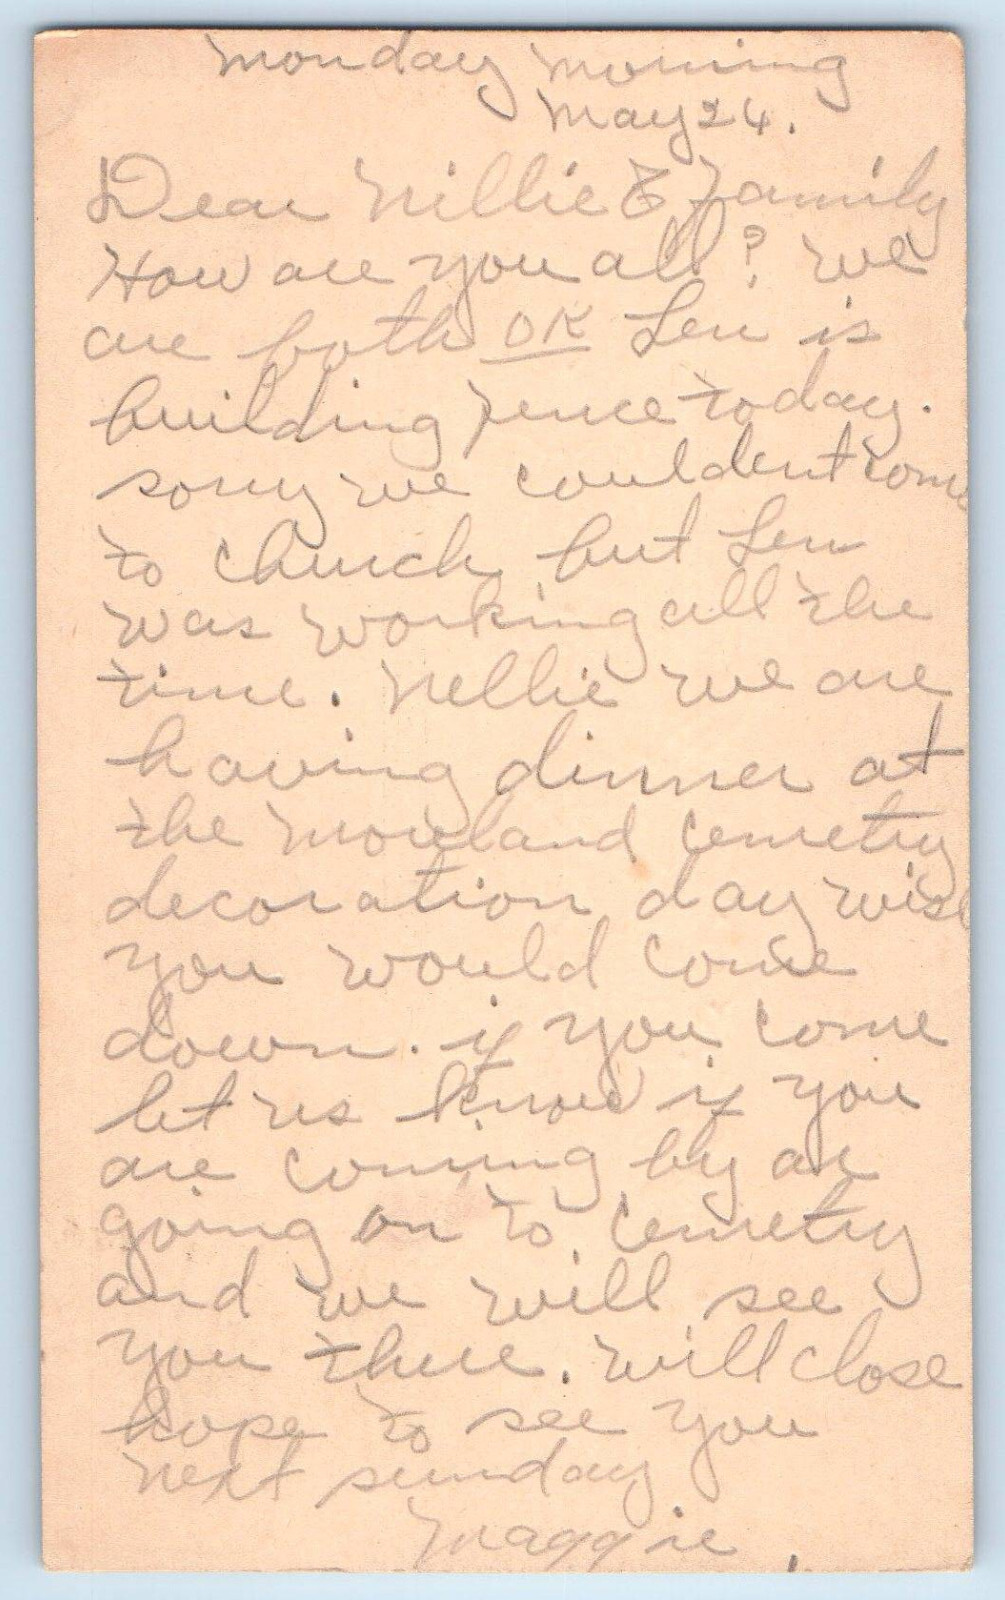 monday morning
may 24.
Dear Nillie & Family
How are you all? we
are both OK Len is
building fence today.
sorry we couldent come
to church but Len
was working all the
time. Nellie we are
having dinner at
the Moreland cemetry
decoration day wish
you would come
down. if you come
let us know if you
are coming by or
going on to cemetry
and we will see
you there. will close
hope to see you
next sunday
Maggie.